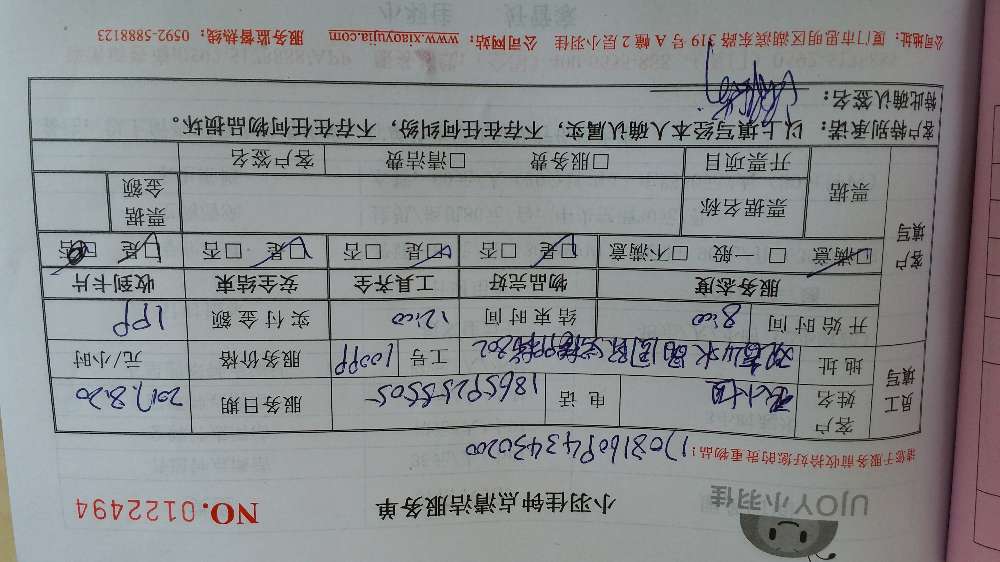 UJOY小羽佳
小羽佳钟点清洁服务单
NO.0122494
请您于服务前收拾好您的贵重物品:
1708160943430200
员工填写
客户姓名
电话 18659255505
服务日期 2017.8.20
地址
工号 100PP
服务价格 元/小时
开始时间 8:00
结束时间 12:00
实付金额 1PP
服务态度 物品完好 工具齐全 安全结束 收到卡片
客户填写
□满意 □一般 □不满意 □是 □否 □是 □否 □是 □否 □是 □否
票据 票据名称 票据金额
开票项目 □服务费 □清洁费 客户签名
客户特别承诺:以上填写经本人确认属实,不存在任何纠纷,不存在任何物品损坏。
特此确认签名:
公司地址:厦门市思明区湖滨东路319号A幢2层小羽佳 公司网站:www.xiaoyujia.com 服务监督热线:0592-5888123